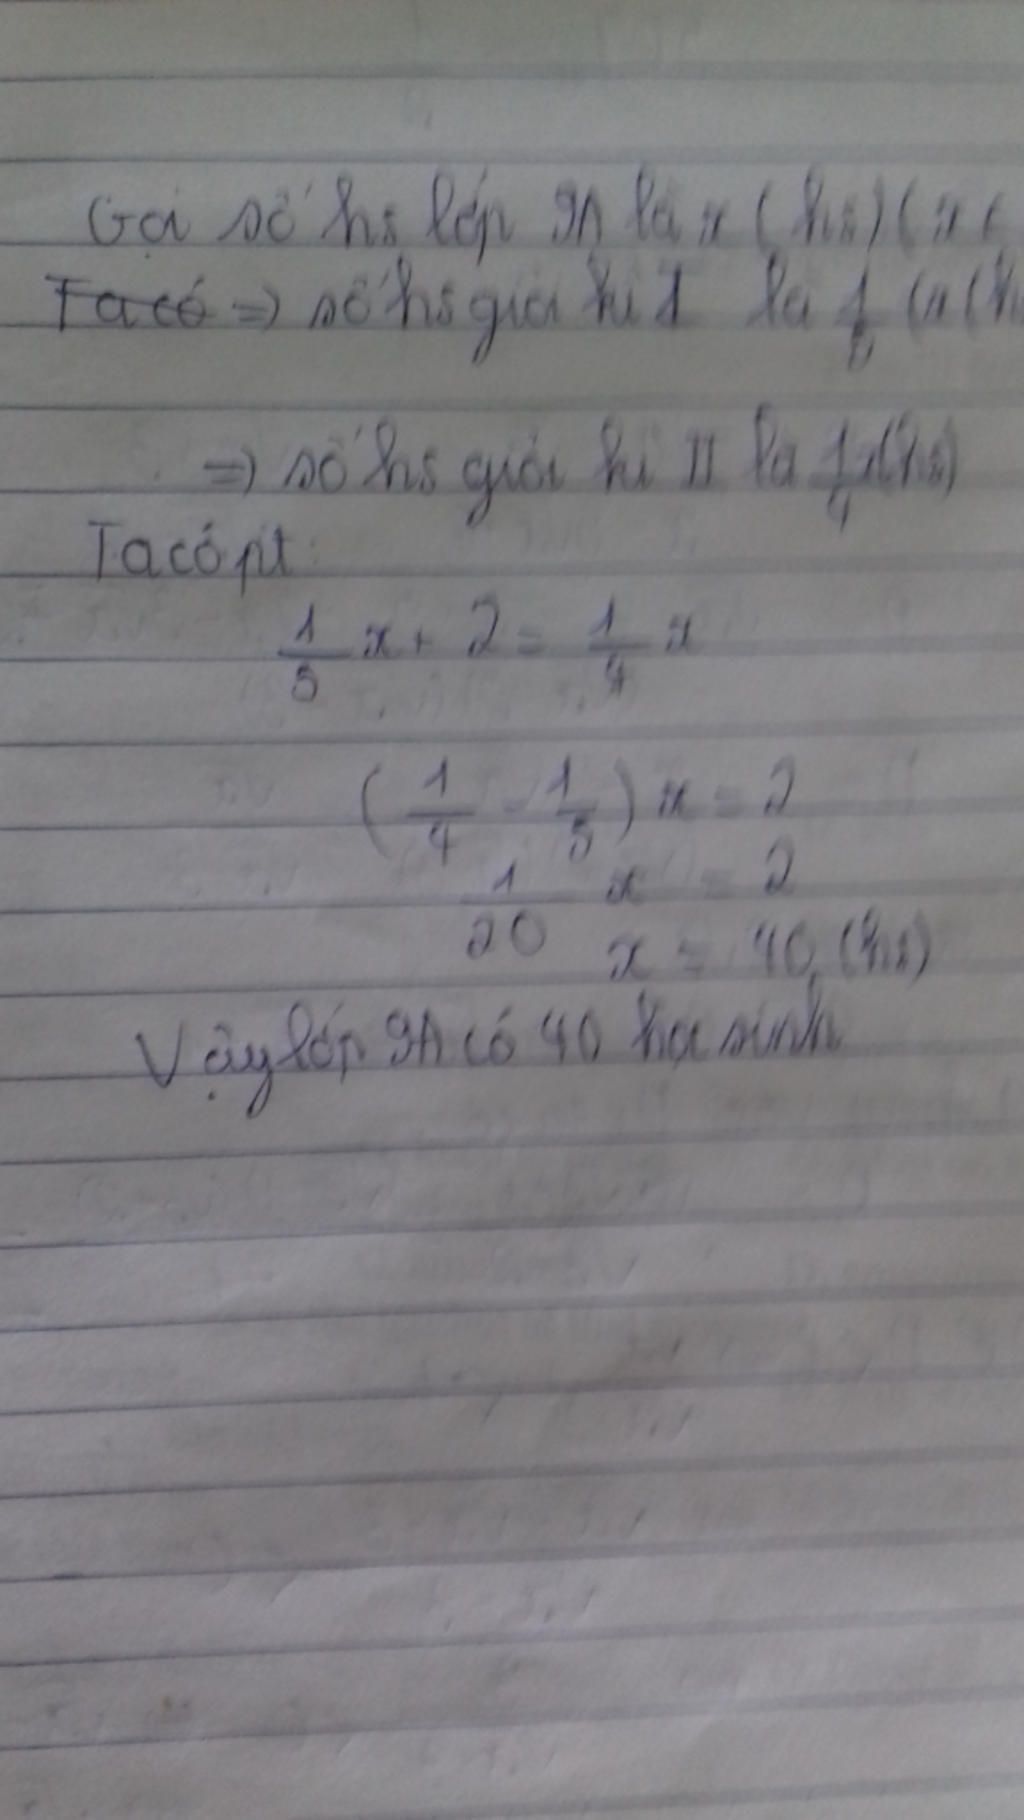 Gọi số hs lớp 9A là x (hs) (x
Ta có => số hs giỏi kì I là 1/5 x (h
=> số hs giỏi kì II là 1/4 x (hs)
Ta có pt:
1/5 x + 2 = 1/4 x
(1/4 - 1/5) x = 2
1/20 x = 2
x = 40 (hs)
Vậy lớp 9A có 40 học sinh